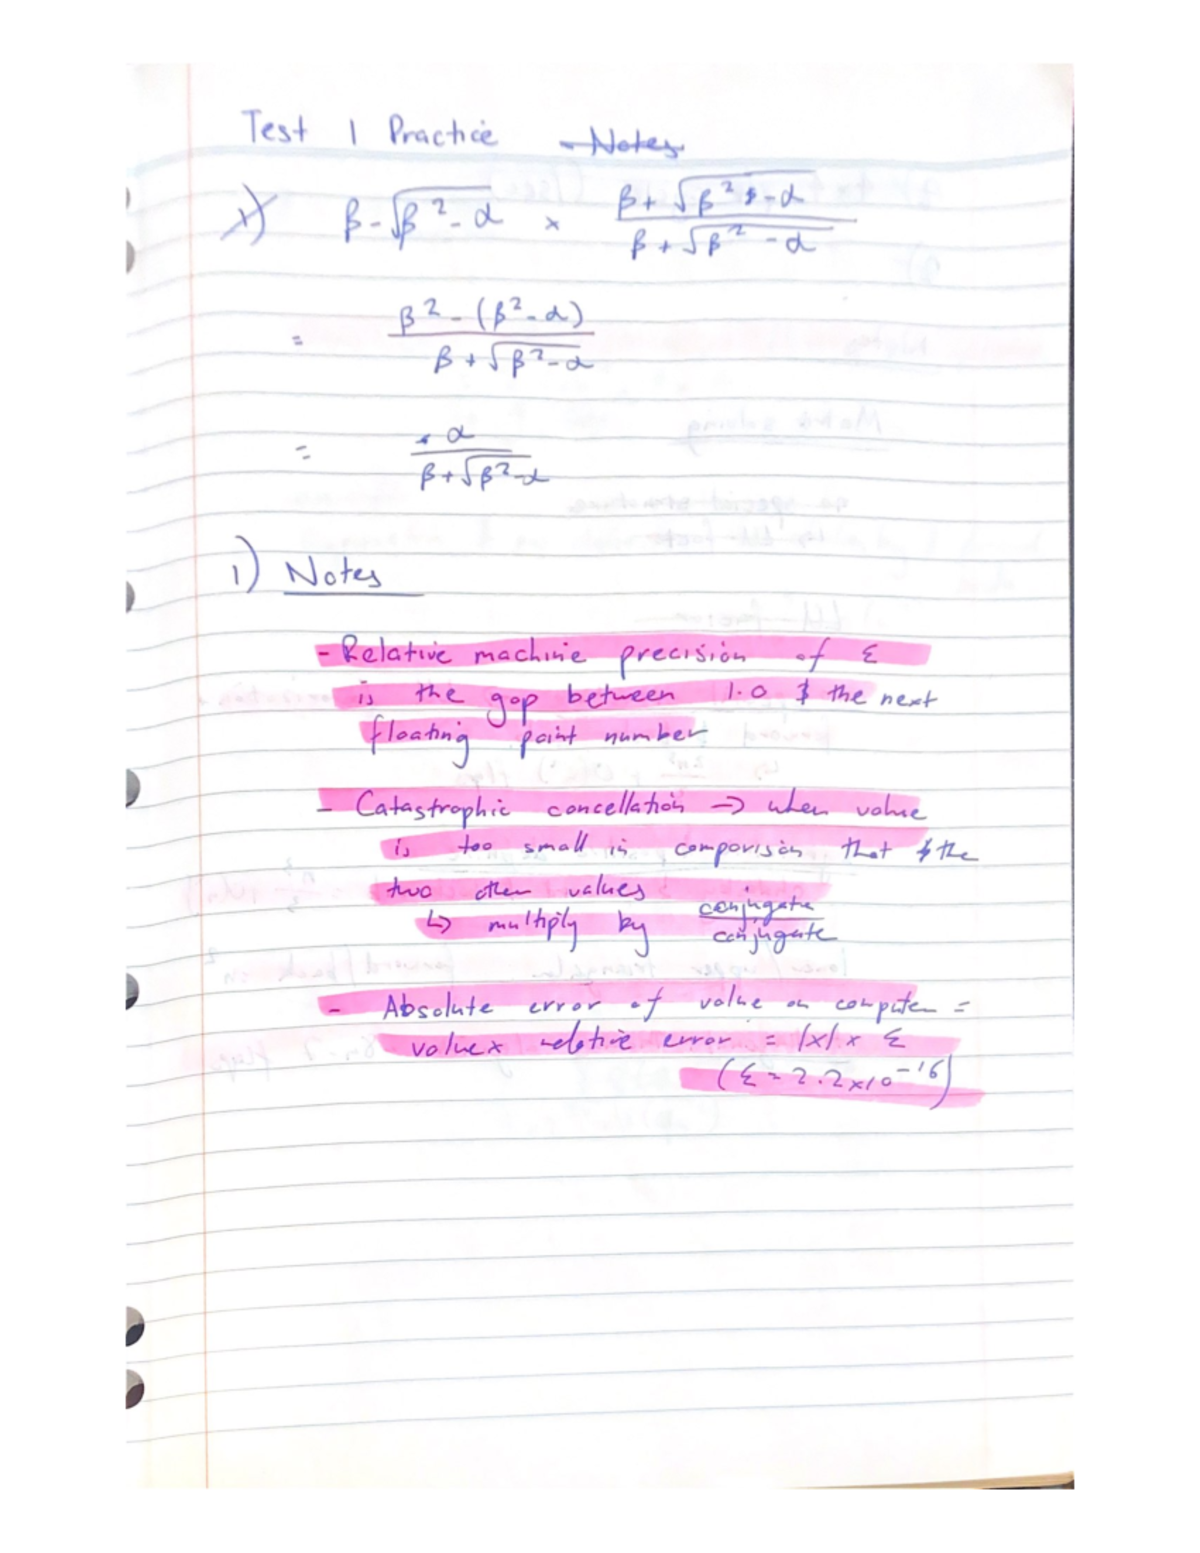 Test 1 Practice - Notes
1) β - √β² - α × β + √β² - α
β + √β² - α
= β² - (β² - α)
β + √β² - α
= α
β + √β² - α
1) Notes
- Relative machine precision of Σ
is the gap between 1.0 & the next
floating point number
- Catastrophic cancellation → when value
is too small in comparison that the
two other values
↳ multiply by conjugate
conjugate
- Absolute error of value on computer =
value x relative error = |x| x Σ
(Σ = 2.2x10⁻¹⁶)